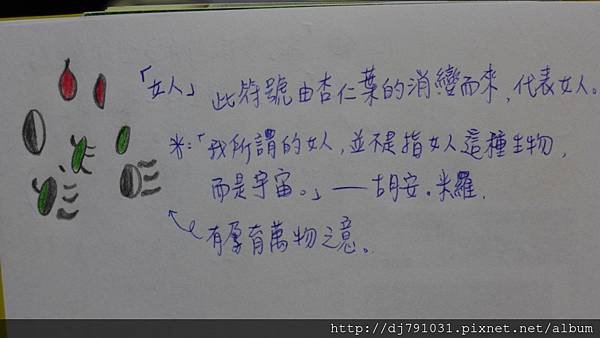 「女人」 此符號由杏仁葉的消變而來，代表女人。
米：「我所謂的女人，並不是指女人這種生物，
而是宇宙。」── 胡安．米羅．
有孕育萬物之意。
http://dj791031.pixnet.net/album